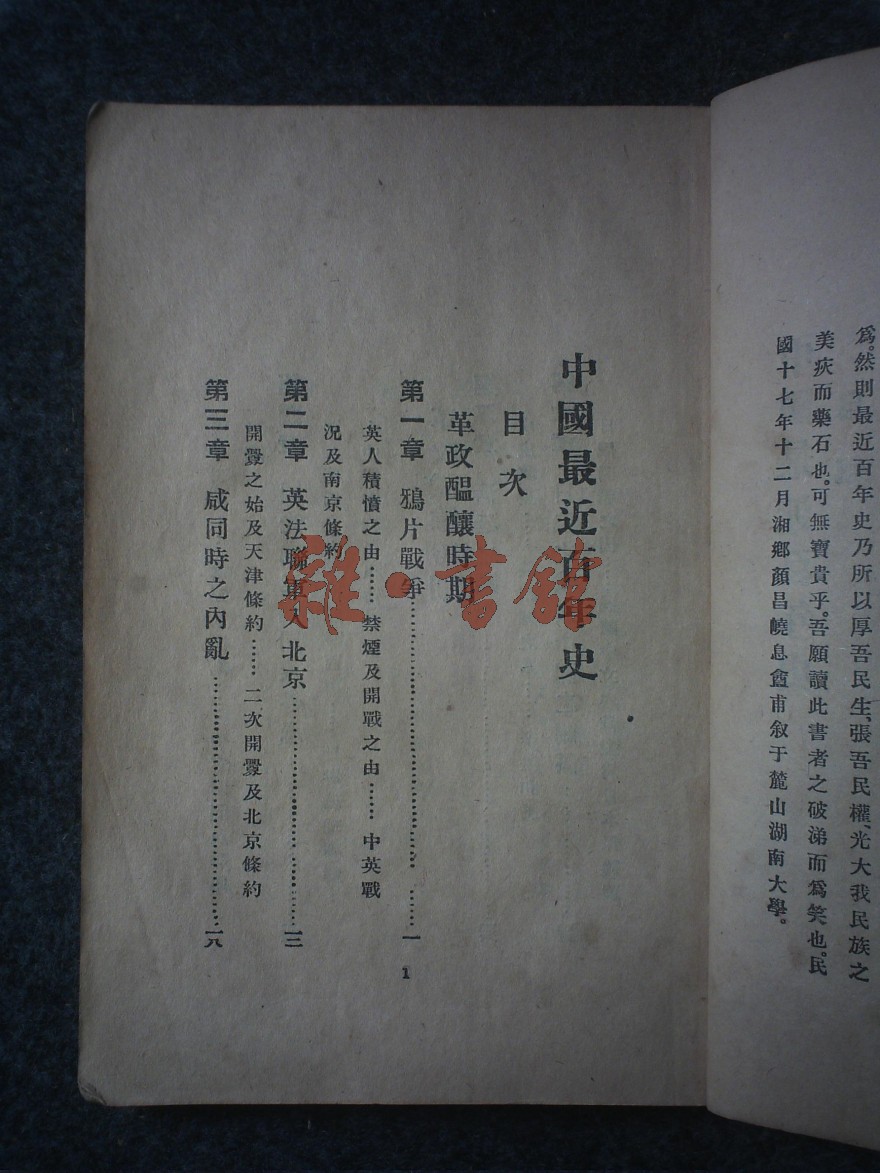 爲。然則最近百年史乃所以厚吾民生、張吾民權、光大我民族之
美疢而藥石也。可無寶貴乎。吾願讀此書者之破涕而爲笑也。民
國十七年十二月湘鄉顏昌嶢息盦甫敘于麓山湖南大學。
中國最近百年史
目次
革政醞釀時期
第一章 鴉片戰爭……一
英人積憤之由……禁煙及開戰之由……中英戰
況及南京條約
第二章 英法聯軍入北京……一三
開釁之始及天津條約……二次開釁及北京條約
第三章 咸同時之內亂……一八
1
雜·書館